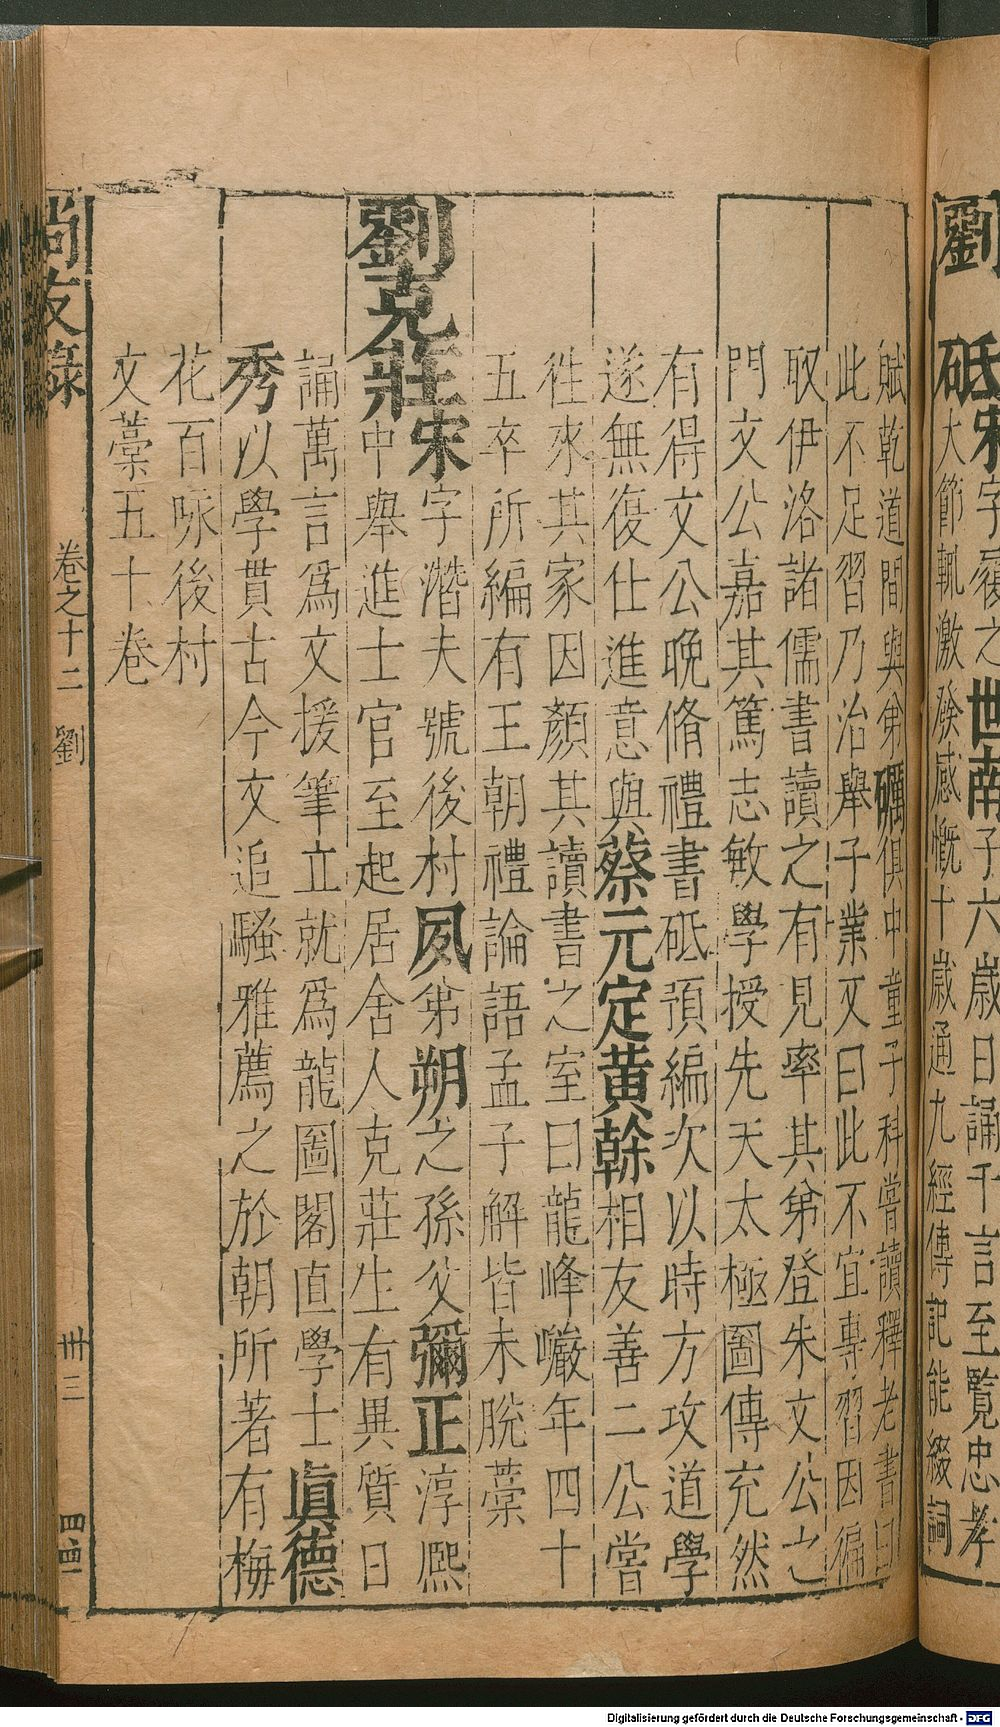 劉砥宋字履之世南子六歲日誦千言至覽忠孝
劉礪大節輒激發感慨十歲通九經傳記能綴詞
賦乾道間與弟礪俱中童子科嘗讀釋老書曰
此不足習乃治舉子業又曰此不宜專習因徧
取伊洛諸儒書讀之有見率其弟登朱文公之
門文公嘉其篤志敏學授先天太極圖傳充然
有得文公晚脩禮書砥預編次以時方攻道學
遂無復仕進意與蔡元定黃榦相友善二公嘗
徃來其家因顏其讀書之室曰龍峰巖年四十
五卒所編有王朝禮論語孟子解皆未脫藁
劉克莊宋字潛夫號後村夙弟朔之孫父彌正淳熈
中舉進士官至起居舍人克莊生有異質日
誦萬言爲文援筆立就爲龍圖閣直學士眞德
秀以學貫古今文追騷雅薦之於朝所著有梅
花百咏後村
文藁五十卷
尚友錄
卷之十二
劉
卅三
Digitalisierung gefördert durch die Deutsche Forschungsgemeinschaft - DFG